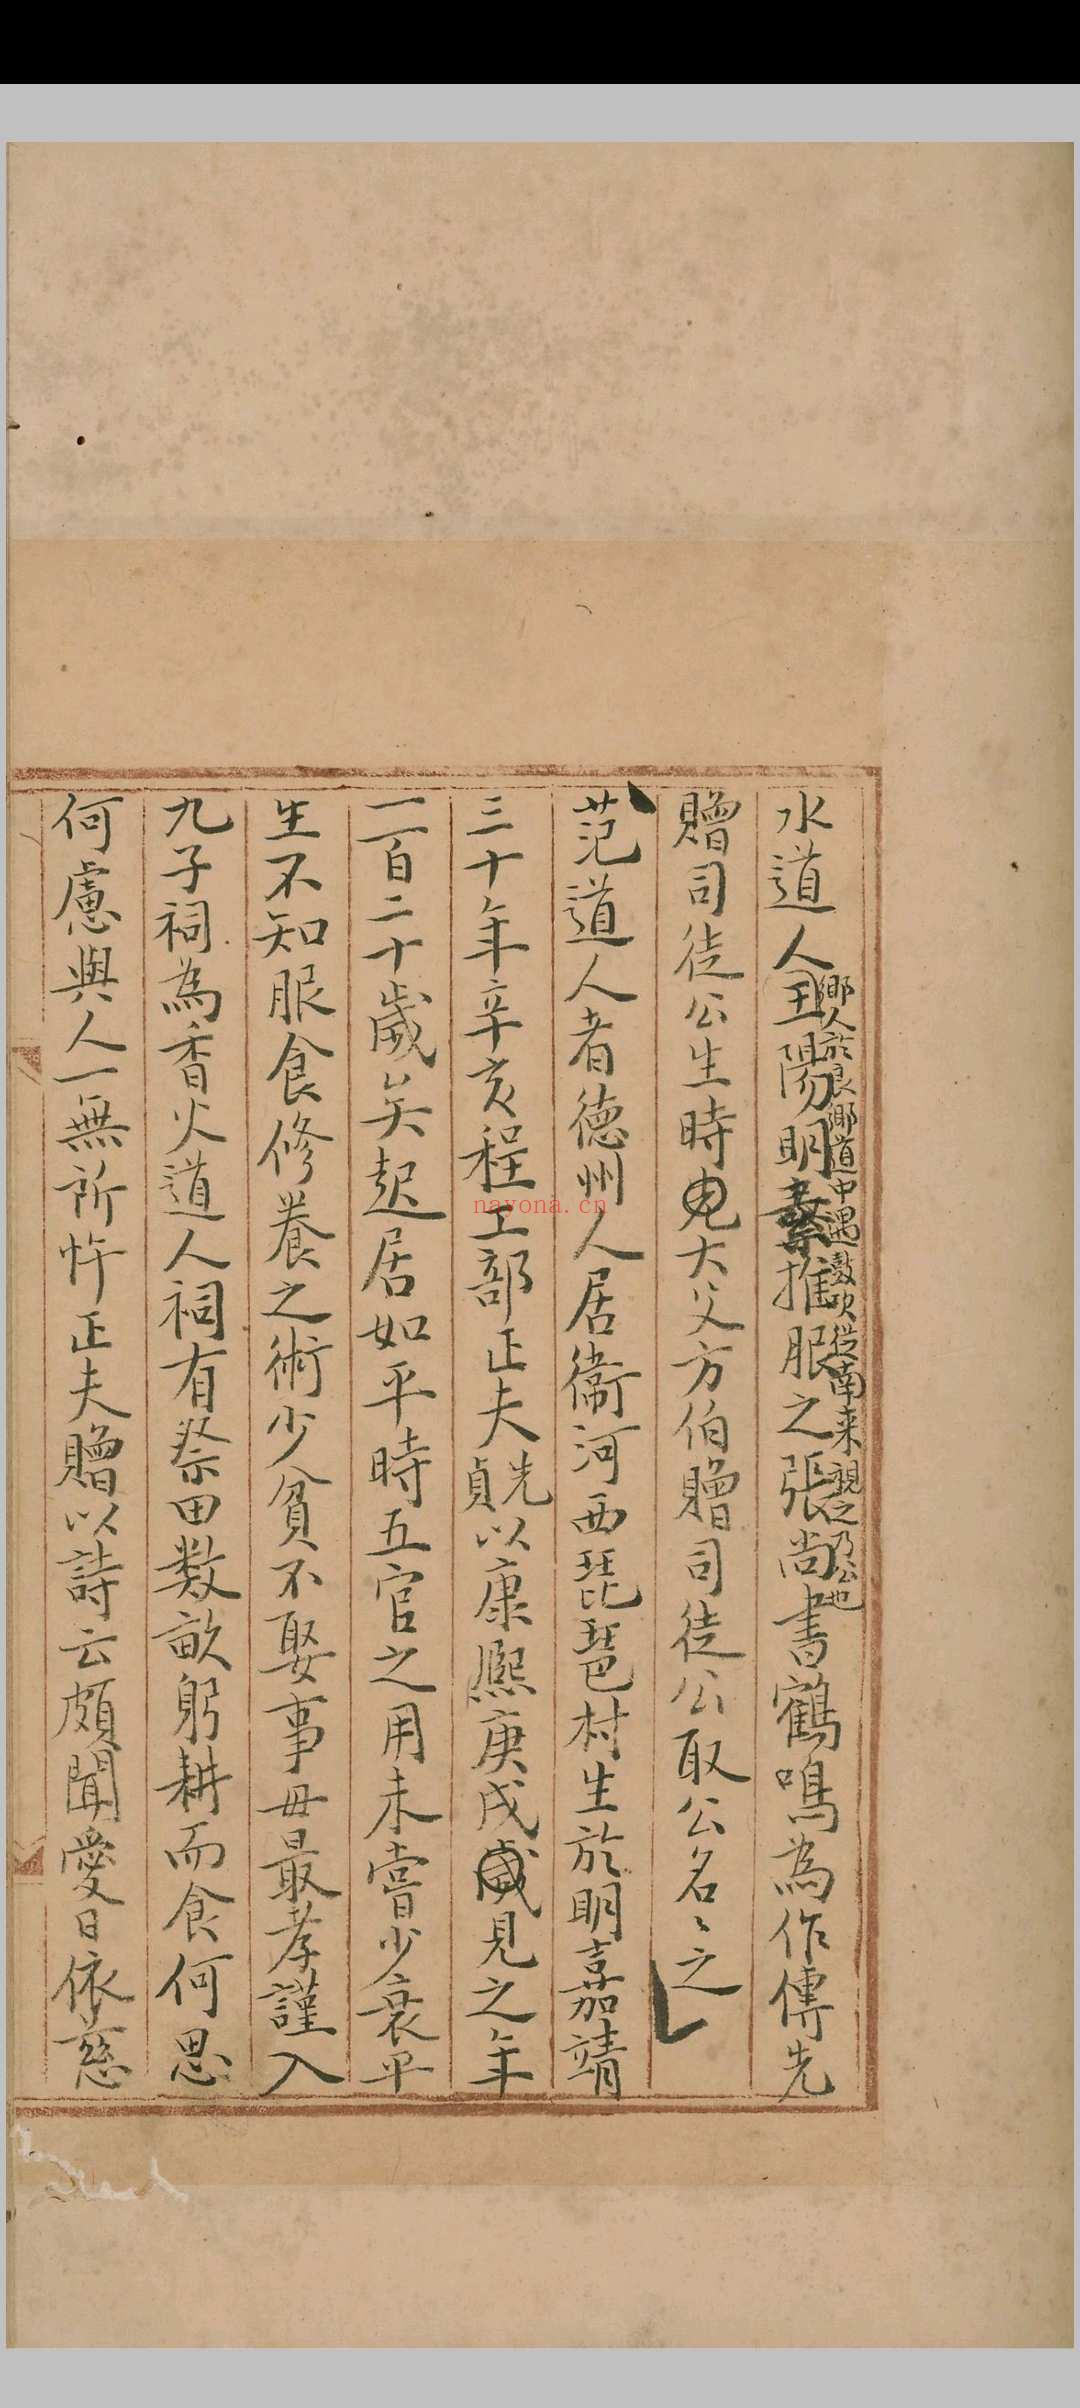 水道人王陽明推服之張尚書鶴鳴為作傳先
鄉人於良鄉道中遇鼓吹從南来視之乃公也
贈司徒公生時大父方伯贈司徒公取公名々之
范道人者德州人居衞河西琵琶村生於明嘉靖
三十年辛亥程工部正夫先貞以康熙庚戌見之年
一百二十歲矣起居如平時五官之用未嘗少衰平
生不知服食修養之術少貧不娶事母最孝謹入
九子祠為香火道人祠有祭田数畝躬耕而食何思
何慮與人一無所忤正夫贈以詩云頗聞愛日依慈
nayona.cn